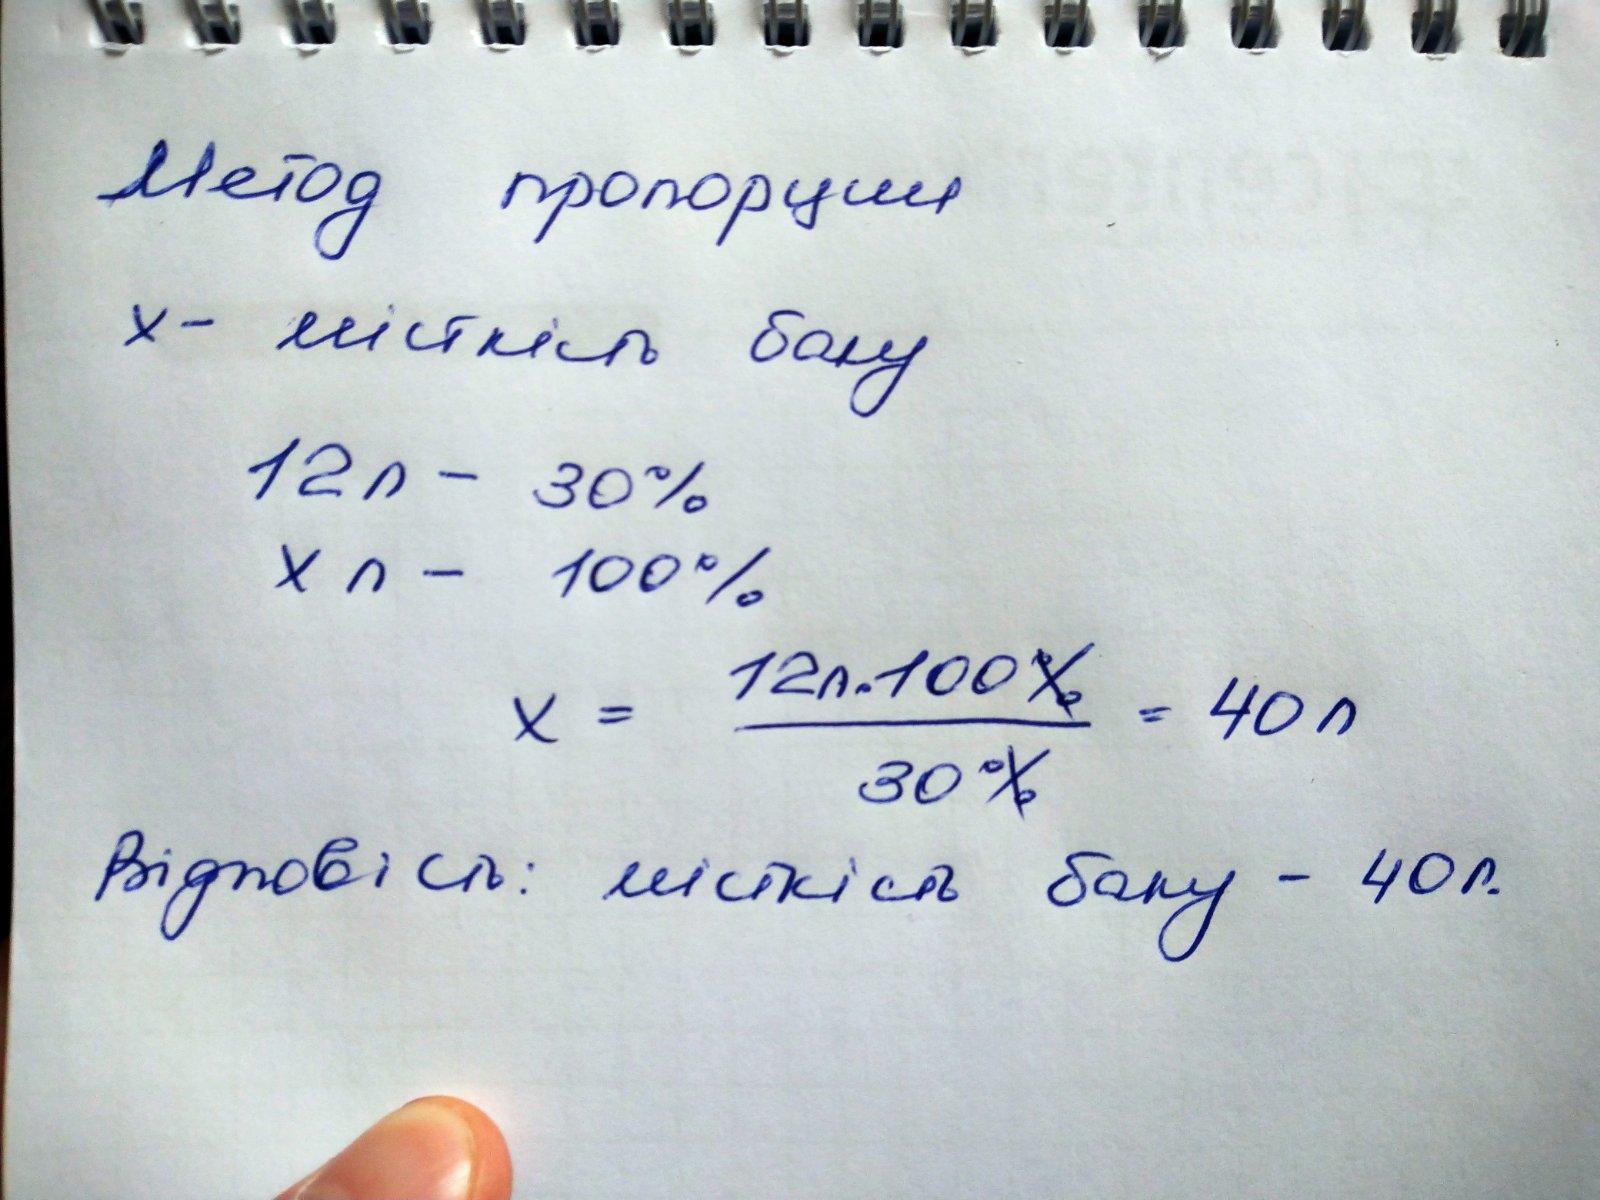 Метод пропорции
х- місткість баку
12л - 30%
х л - 100%
х = 12л.100% / 30% = 40 л
Відповість: місткість баку - 40л.